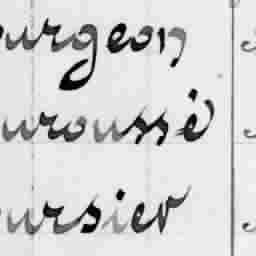 ourgeon
uroussé
ursier